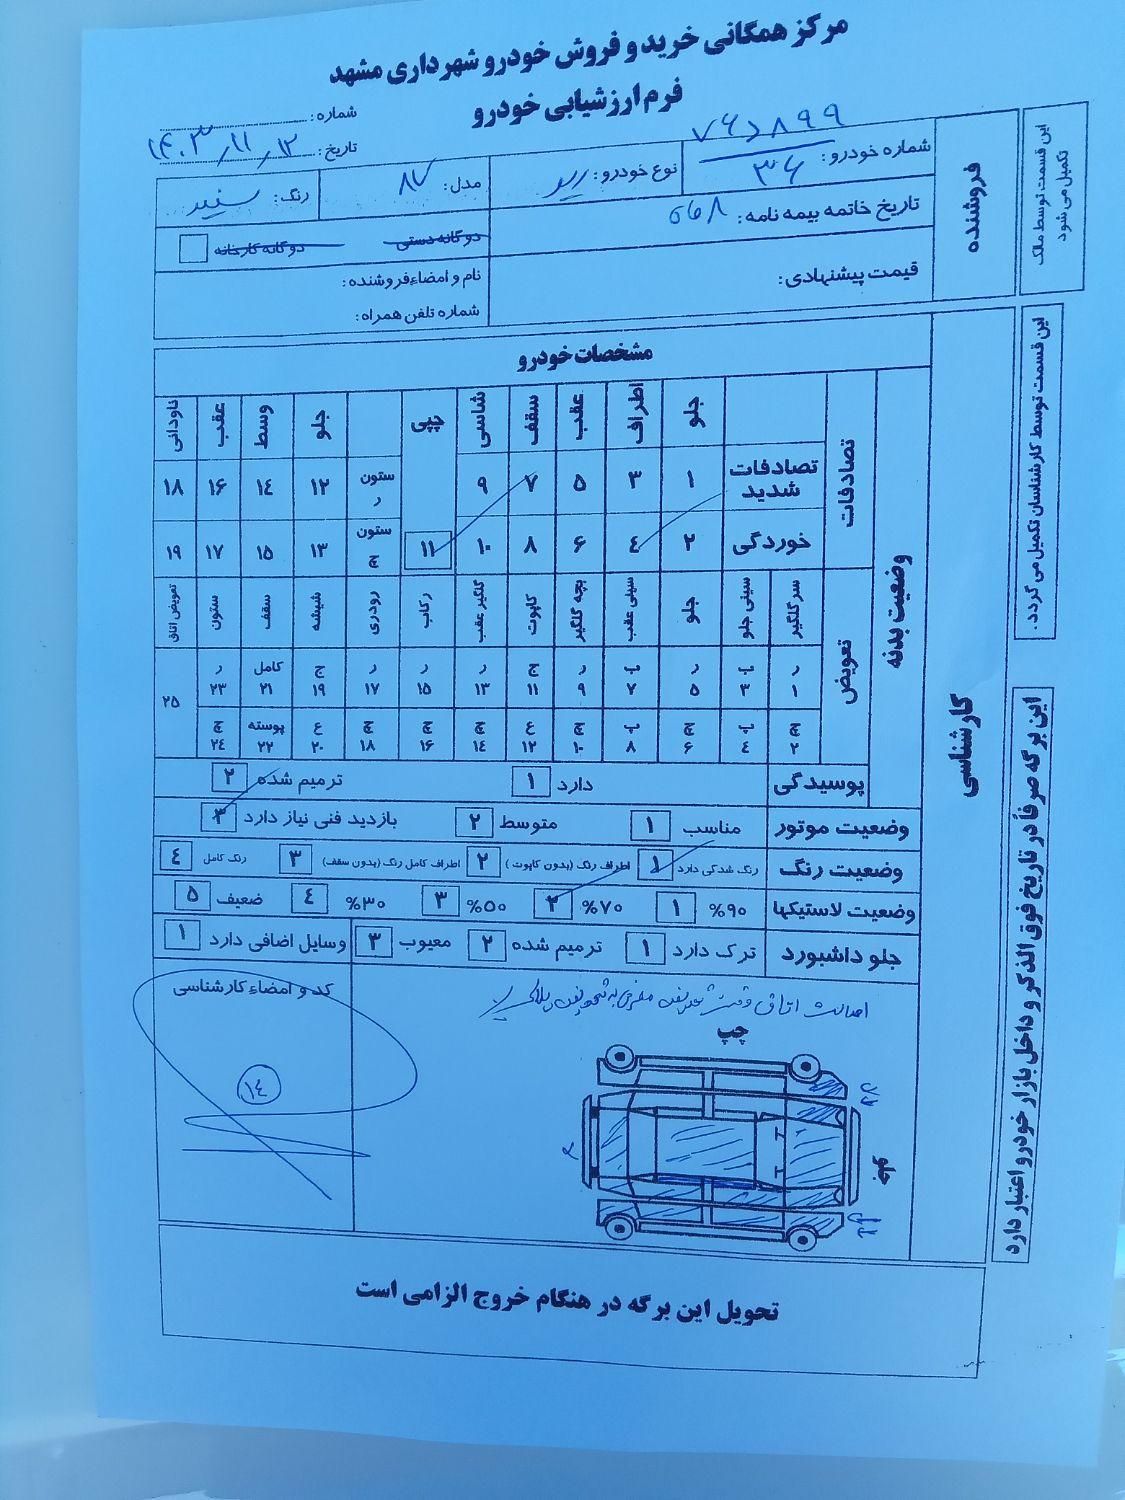 مرکز همگانی خرید و فروش خودرو شهرداری مشهد
فرم ارزشیابی خودرو
شماره:
تاریخ: ۱۴۰۳/۱۱/۱۲
این قسمت توسط مالک تکمیل می شود
فروشنده
شماره خودرو:
۳۶
نوع خودرو:
مدل: ۸۷
رنگ: سفید
تاریخ خاتمه بیمه نامه:
دوگانه دستی
دوگانه کارخانه
قیمت پیشنهادی:
نام و امضاء فروشنده:
شماره تلفن همراه:
این قسمت توسط کارشناسان تکمیل می گردد.
کارشناسی
مشخصات خودرو
وضعیت بدنه
تصادفات
جلو اطراف عقب سقف شاسی چپی جلو وسط عقب ناودانی
تصادفات شدید ۱ ۳ ۵ ۷ ۹ ستون ر ۱۲ ۱۴ ۱۶ ۱۸
خوردگی ۲ ۴ ۶ ۸ ۱۰ ۱۱ ستون چ ۱۳ ۱۵ ۱۷ ۱۹
تعویض
سر گلگیر سینی جلو جلو سینی عقب بچه گلگیر کاپوت گلگیر عقب رکاب رودری شیشه سقف ستون تعویض اتاق
ر ۱ پ ۳ ر ۵ پ ۷ ر ۹ ج ۱۱ ر ۱۳ ر ۱۵ ر ۱۷ ج ۱۹ کامل ۲۱ ر ۲۳ ۲۵
چ ۲ پ ۴ چ ۶ پ ۸ چ ۱۰ ع ۱۲ چ ۱۴ چ ۱۶ چ ۱۸ ع ۲۰ پوسته ۲۲ چ ۲۴
پوسیدگی دارد ۱ ترمیم شده ۲
وضعیت موتور مناسب ۱ متوسط ۲ بازدید فنی نیاز دارد ۳
وضعیت رنگ رنگ شدگی دارد ۱ اطراف رنگ (بدون کاپوت) ۲ اطراف کامل رنگ (بدون سقف) ۳ رنگ کامل ۴
وضعیت لاستیکها ۹۰% ۱ ۷۰% ۲ ۵۰% ۳ ۳۰% ۴ ضعیف ۵
جلو داشبورد ترک دارد ۱ ترمیم شده ۲ معیوب ۳ وسایل اضافی دارد ۱
اصالت اتاق
کد و امضاء کارشناسی
۱۴
چپ
جلو
این برگه صرفاً در تاریخ فوق الذکر و داخل بازار خودرو اعتبار دارد
تحویل این برگه در هنگام خروج الزامی است